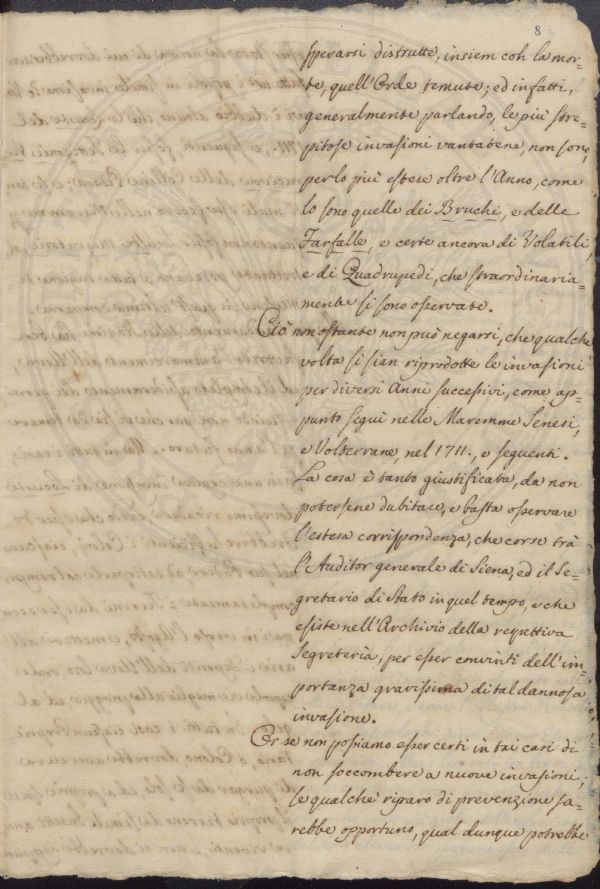 8
sperarsi distrutte, insiem con la mor-
te, quell'Orde temute; ed infatti,
generalmente parlando, le più stre-
pitose invasioni vantatene, non sono,
per lo più estese oltre l'Anno, come
lo sono quelle dei Bruchi, e delle
Farfalle, e certe ancora di Volatili,
e di Quadrupedi, che straordinaria-
mente si sono osservate.
Ciò non ostante non può negarsi, che qualche
volta si sian riprodotte le invasioni
per diversi Anni successivi, come ap-
punto seguì nelle Maremme Senesi,
e Volterrane, nel 1711., e seguenti.
La cosa è tanto giustificata, da non
potersene dubitare, e basta osservare
l'estesa corrispondenza, che corse trà
l'Auditor generale di Siena, ed il Se-
gretario di Stato in quel tempo, e che
esiste nell'Archivio della respettiva
Segreteria, per esser convinti dell'im-
portanza gravissima di tal dannosa
invasione.
Or se non possiamo esser certi in tai casi di
non soccombere a nuove invasioni;
se qualche riparo di prevenzione sa-
rebbe opportuno, qual dunque potrebbe